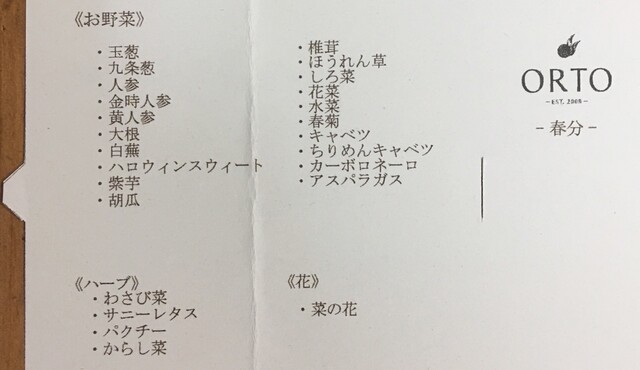 《お野菜》
・玉葱
・九条葱
・人参
・金時人参
・黄人参
・大根
・白蕪
・ハロウィンスウィート
・紫芋
・胡瓜
・椎茸
・ほうれん草
・しろ菜
・花菜
・水菜
・春菊
・キャベツ
・ちりめんキャベツ
・カーボロネーロ
・アスパラガス
ORTO
-EST. 2008-
- 春分 -
《ハーブ》
・わさび菜
・サニーレタス
・パクチー
・からし菜
《花》
・菜の花